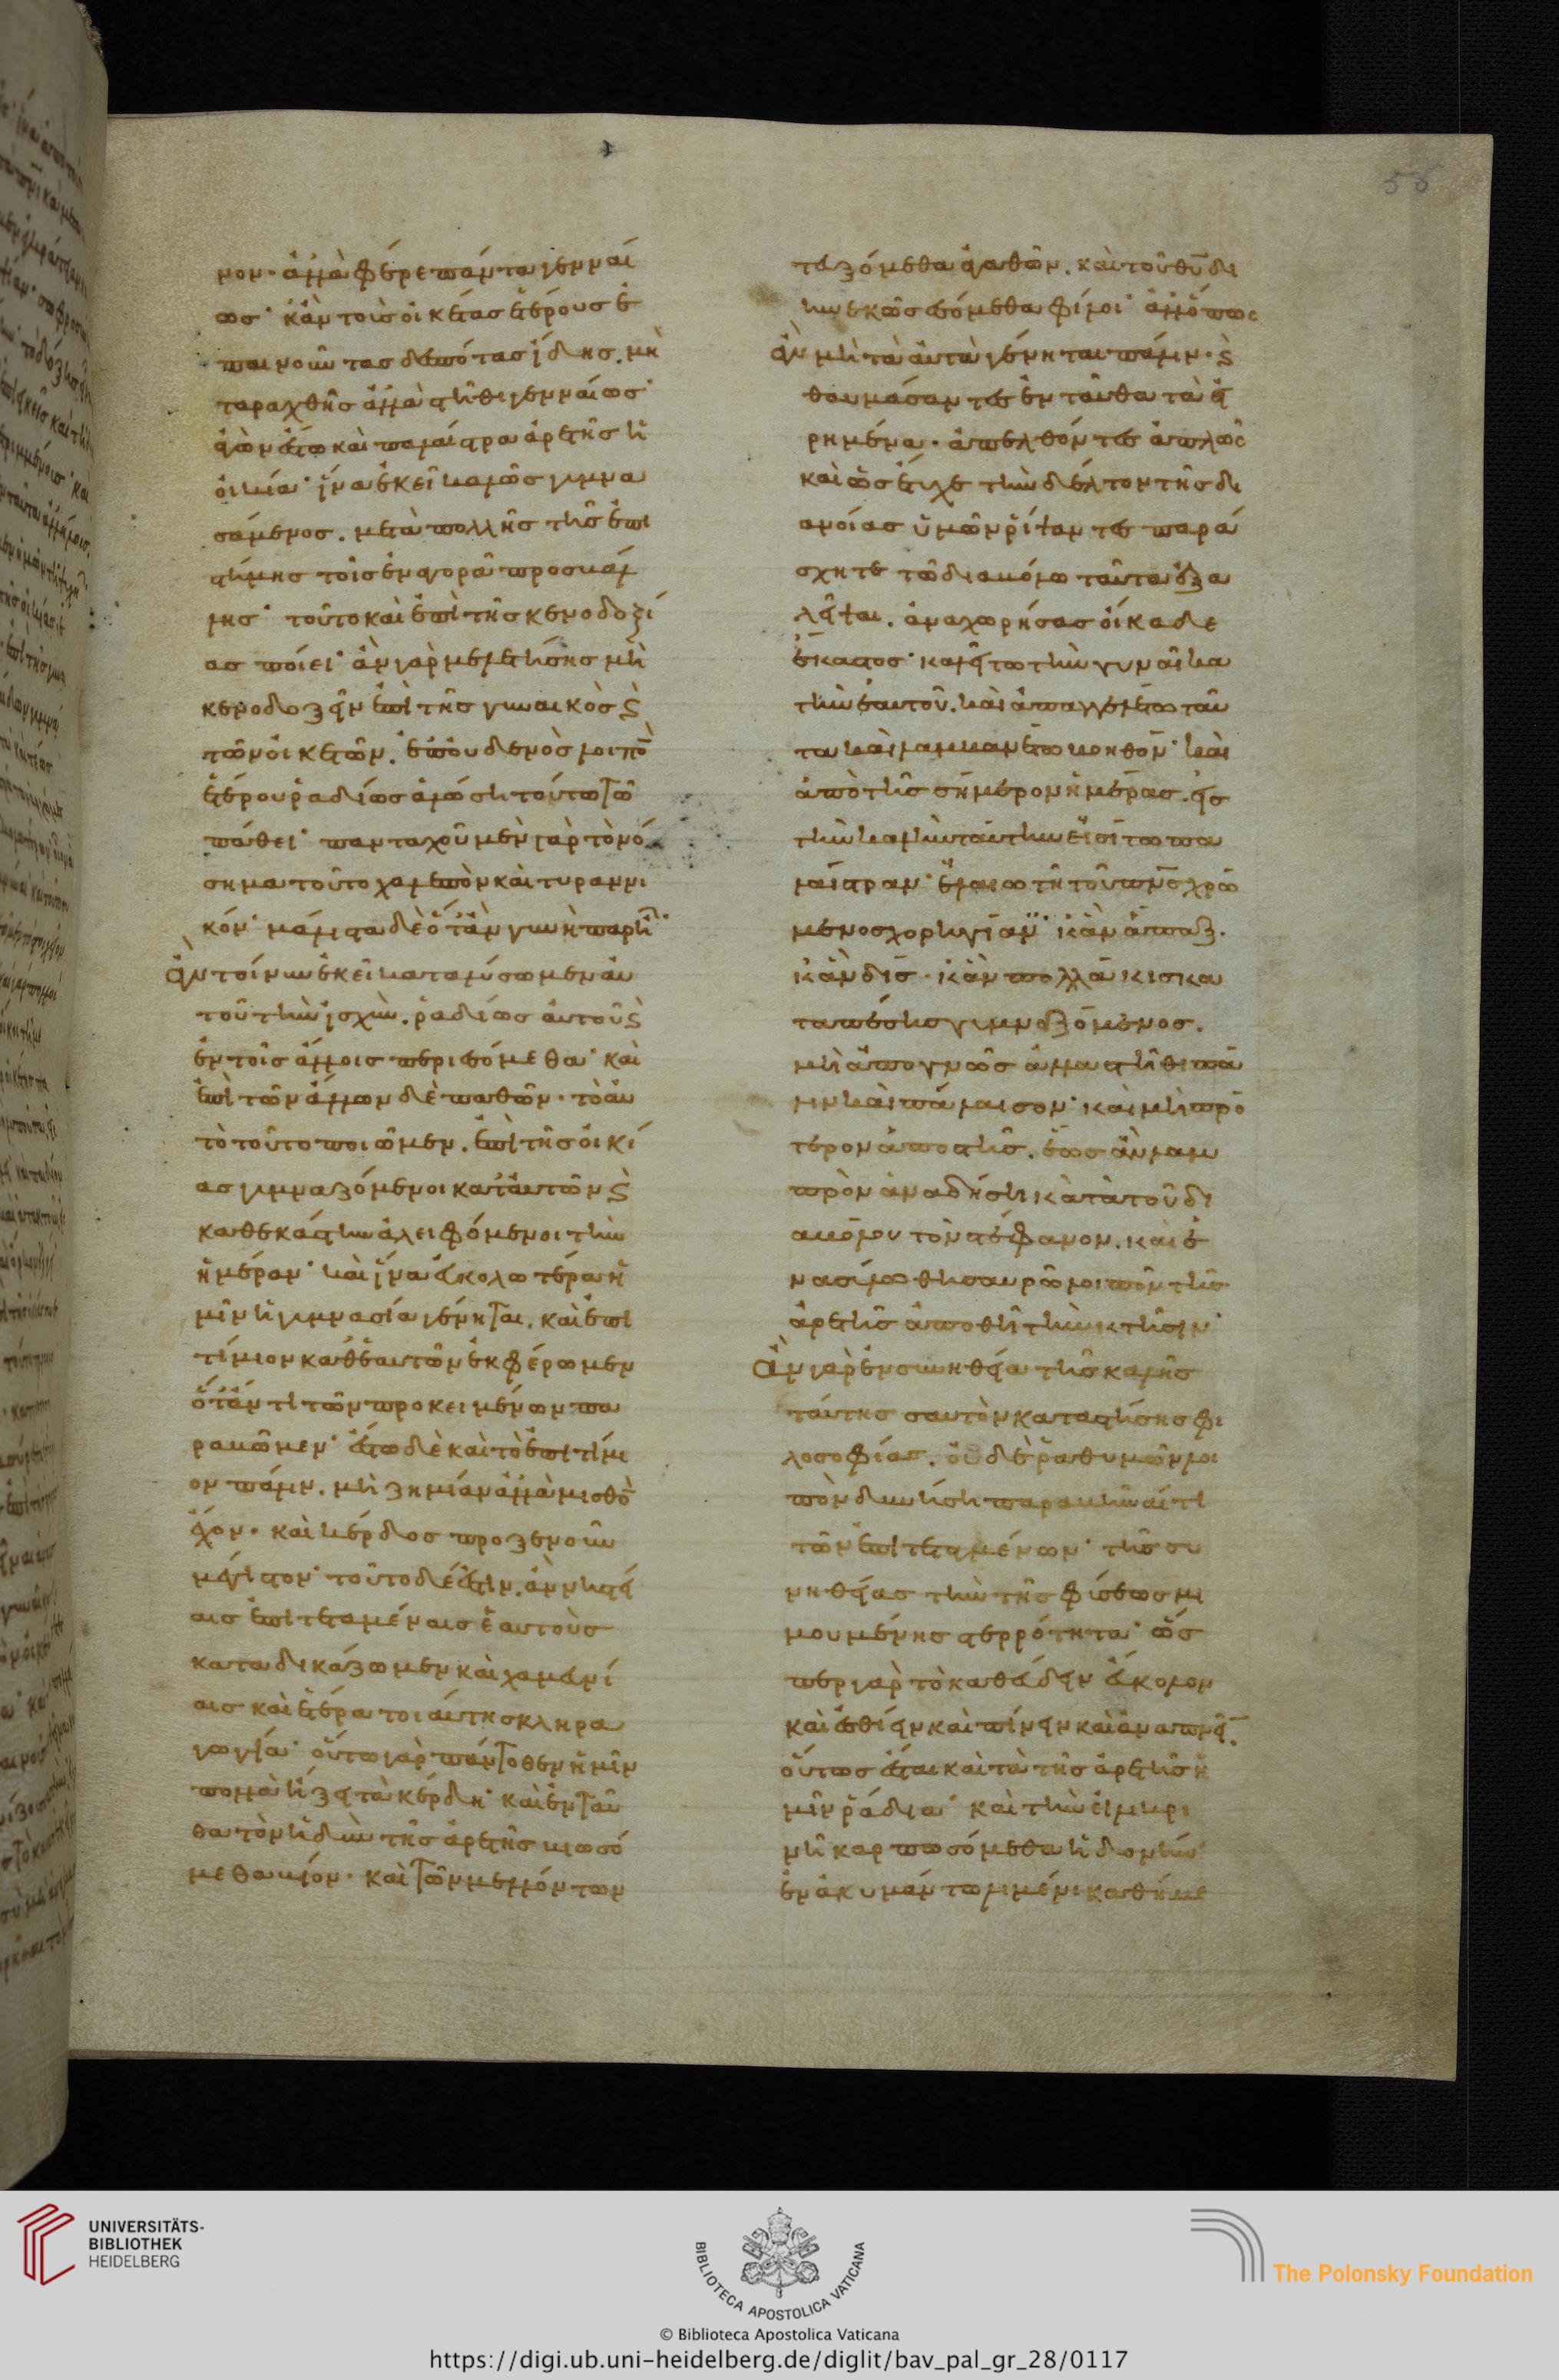 55
νον· ἀλλὰ φέρε πάντα γενναί
ως· κἂν τοὺς οἰκέτας ἑτέρους ἐ
παινοῦντας δεσπότας ἴδης. μὴ
ταραχθῆς ἀλλὰ στῆθι γενναίως·
γυμνα
σάμενος. μετὰ πολλῆς τῆς ἐπι
στήμης τοῖς ἐν ἀγορᾶ προσβάλ
λης· τοῦτο καὶ ἐπὶ τῆς κενοδοξί
ας ποίει· ἂν γὰρ μελετήσης μὴ
κενοδοξεῖν ἐπὶ τῆς γυναικὸς καὶ
τῶν οἰκετῶν. ἐπ' οὐδενὸς λοιπὸν
ἑτέρου ῥαδίως ἁλώση τούτω τῶ
πάθει· πανταχοῦ μὲν γὰρ τὸ νό
σημα τοῦτο χαλεπὸν καὶ τυραννι
κόν· μάλιστα δὲ ὅτἂν γυνὴ παρῆ·
ἂν τοίνυν ἐκεῖ καταλύσωμεν αὐ
τοῦ τὴν ἰσχὺν. ῥαδίως αὐτοῦ καὶ
ἐν τοῖς ἄλλοις περιεσόμεθα· καὶ
ἐπὶ τῶν ἄλλων δὲ παθῶν· τὸ αὐ
τὸ τοῦτο ποιῶμεν. ἐπὶ τῆς οἰκί
ας γυμναζόμενοι κατ' αὐτῶν καὶ
καθεκάστην ἀλειφόμενοι τὴν
ἡμέραν· καὶ ἵνα εὐκολωτέρα ἡ
μῖν ἡ γυμνασία γένηται. καὶ ἐπι
τίμιον καθ' ἑαυτῶν ἐκφέρωμεν
ὅτἄν τι τῶν προκειμένων πα
ραβῶμεν· ἔστω δὲ καὶ τὸ ἐπιτίμι
ον πάλιν. μὴ ζημίαν ἀλλὰ μισθὸν
ἔχον· καὶ κέρδος προξενοῦν
μέγιστον· τοῦτο δέ ἐστιν. ἂν νηστεί
αις ἐπιτεταμέναις ἑαυτοὺς
καταδικάζωμεν καὶ χαμευνί
αις καὶ ἑτέρα τοιαύτη σκληρα
γωγία· οὕτω γὰρ πάντοθεν ἡμῖν
πολλὰ ἥξει τὰ κέρδη· καὶ ἐνταῦ
θα τὸν ἡδὺν τῆς ἀρετῆς βιωσό
μεθα βίον· καὶ τῶν μελλόντων
τευξόμεθα ἀγαθῶν. καὶ τοῦ θεοῦ δι
ηνεκῶς ἐσόμεθα φίλοι· ἀλλ' ὅπως
ἂν μὴ τὰ αὐτὰ γένηται πάλιν· καὶ
θαυμάσαντες ἐνταῦθα τὰ εἰ
ρημένα· ἀπελθόντες ἁπλῶς
καὶ ὡς ἔτυχε τὴν δέλτον τῆς δι
ανοίας ὑμῶν ῥίψαντες παρά
σχητε τῶ διαβόλω ταῦτα ἐξα
λεῖψαι. ἀναχωρήσας οἴκαδε
ἕκαστος· καλείτω τὴν γυναῖκα
τὴν ἑαυτοῦ. καὶ ἀπαγγελέτω ταῦ
τα καὶ λαμβανέτω βοηθόν· καὶ
ἀπὸ τῆς σήμερον ἡμέρας. εἰς
τὴν καλὴν ταύτην εἰσίτω πα
λαίστραν· ἐλαίω τῆ τοῦ πνεύματος χρώ
μενος χορηγία· κἂν ἅπαξ.
κἂν δὶς· κἂν πολλάκις κα
ταπέσης γυμναζόμενος.
μὴ ἀπογνῶς ἀλλὰ στῆθι πά
λιν καὶ πάλαισον· καὶ μὴ πρό
τερον ἀποστῆς. ἕως ἂν λαμ
πρὸν ἀναδήση κατὰ τοῦ δι
αβόλου τὸν στέφανον. καὶ ἐ
ν ἀσύλω θησαυρῶ λοιπὸν τῆς
ἀρετῆς ἀποθῆ τὴν κτῆσιν·
ἂν γὰρ ἐν συνηθεία τῆς καλῆς
ταύτης σαυτὸν καταστήσης φι
λοσοφίας. οὐδὲ ῥαθυμῶν λοι
πὸν δυνήση παραβῆναί τι
τῶν ἐπιτεταγμένων· τῆς συ
νηθείας τὴν τῆς φύσεως μι
μουμένης στερρότητα· ὥς
περ γὰρ τὸ καθεύδειν εὔκολον
καὶ ἐσθίειν καὶ πίνειν καὶ ἀναπνεῖν.
οὕτως ἔσται καὶ τὰ τῆς ἀρετῆς ἡ
μῖν ῥάδια· καὶ τὴν εἰλικρι
νῆ καρπωσόμεθα ἡδονήν·
ἐν ἀκυμάντω λιμένι καθήμε
UNIVERSITÄTS-
BIBLIOTHEK
HEIDELBERG
BIBLIOTECA APOSTOLICA VATICANA
The Polonsky Foundation
© Biblioteca Apostolica Vaticana
https://digi.ub.uni-heidelberg.de/diglit/bav_pal_gr_28/0117